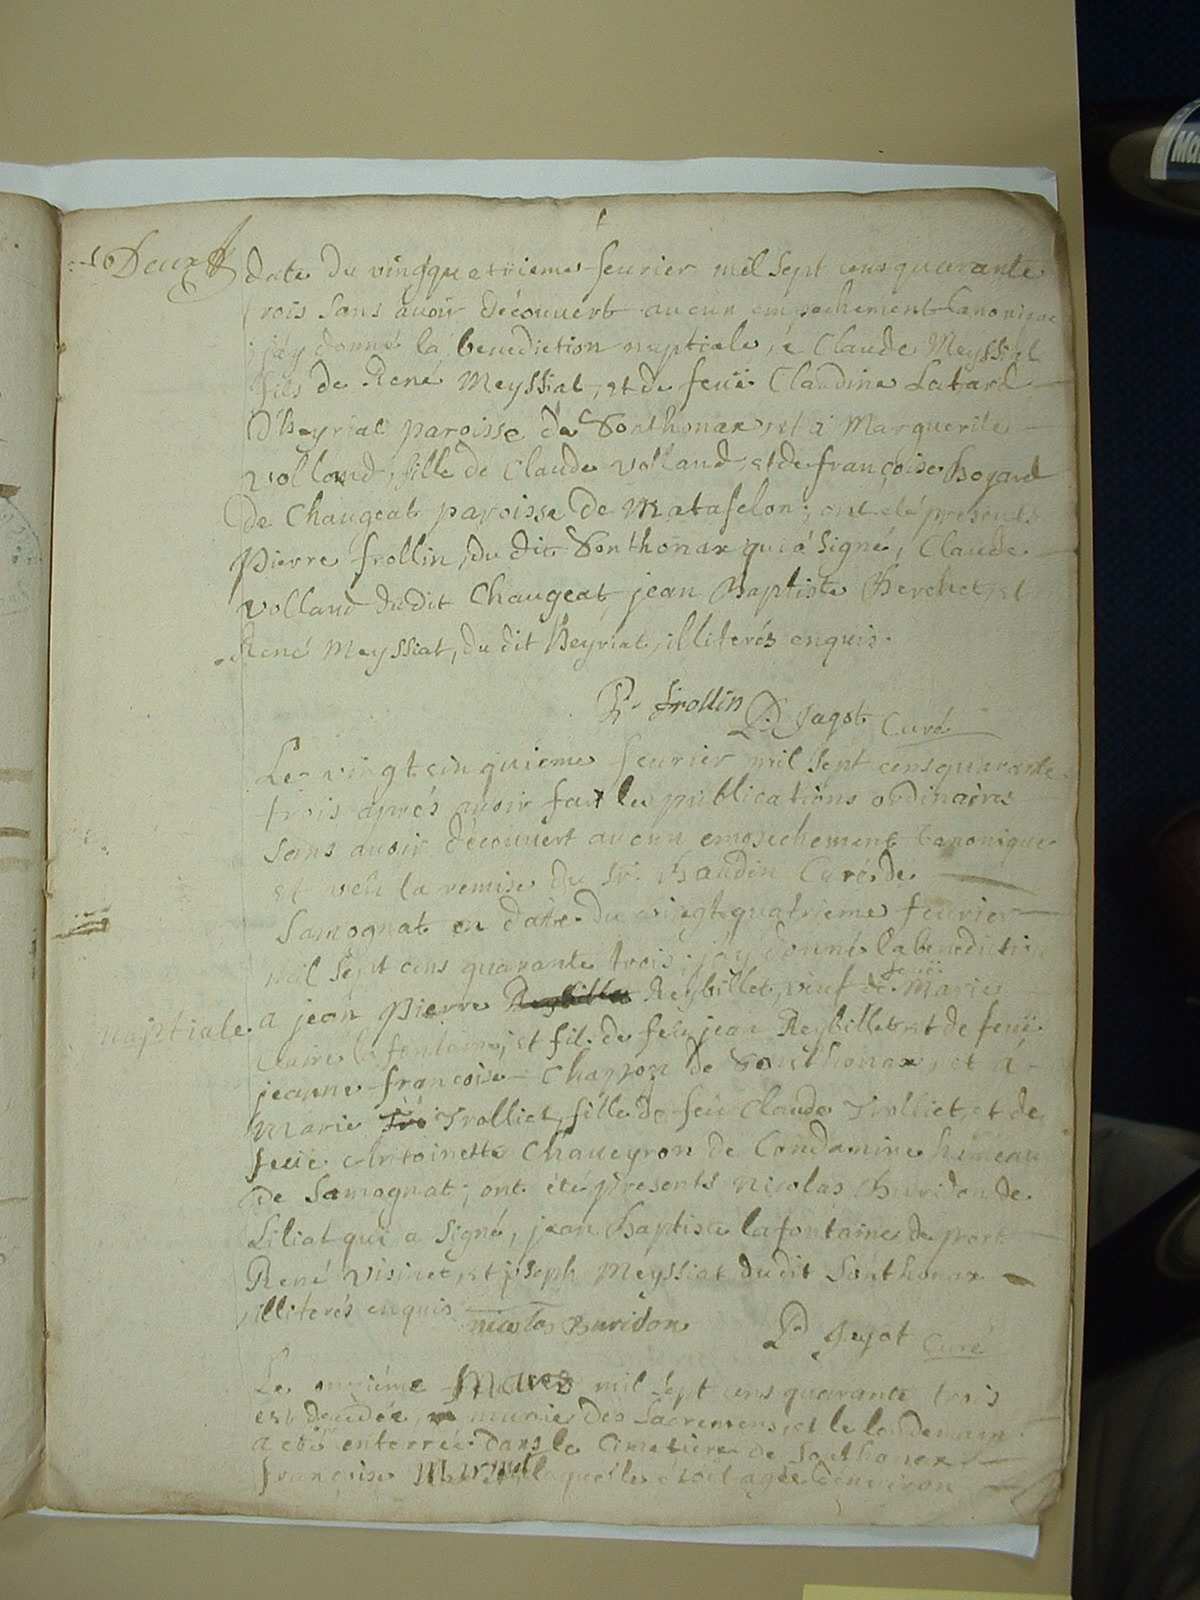 Deux
date du vingtquatrieme fevrier mil sept cens quarante
trois sans avoir découvert aucun empechement canonique
j'ay donné la benediction nuptiale, à Claude Meyssiat
fils de René Meyssiat, et de feüe Claudine Latard
d'heyriat paroisse de Sonthonax, et à Marguerite
Volland, fille de Claude Volland, et de françoise Bogard
de Chaugeat paroisse de Matafelon; ont été presents
Pierre frollin, du dit Sonthonax qui a signé, Claude
Volland dudit Chaugeat, jean Baptiste Berchet, et
René Meyssiat, du dit heyriat, illiterés enquis.
P. frollin P. Jagot Curé
Le vingt cinquieme fevrier mil sept cens quarante
trois aprés avoir fait les publications ordinaires
sans avoir découvert aucun empechement canonique
et veu la remise du Sr. Baudin Curé de
Samognat en datte du vingt quatrieme fevrier
mil sept cens quarante trois, j'ay donné la benediction
nuptiale a jean Pierre Reybillet, veuf de feüe Marie
Claire la fontaine, et fils de feu jean Reybillet et de feüe
jeanne françoise Chappon de Sonthonax, et à
Marie Tro Trolliet, fille de feu Claude Trolliet, et de
feüe Antoinette Chaveyron de Condamine hameau
de Samognat; ont été presents Nicolas Buridon de
Liliat qui a signé, jean Baptiste lafontaine de port
René Visinet, et joseph Meyssiat dudit Sonthonax
illiterés enquis
nicolas Buridon P. Jagot Curé
Le onziéme Mars mil sept cens quarante trois
est decedée, munie des Sacremens, et le lendemain
a été enterrée dans le Cimetiere de Sonthonax
françoise laquelle étoit agée d'environ